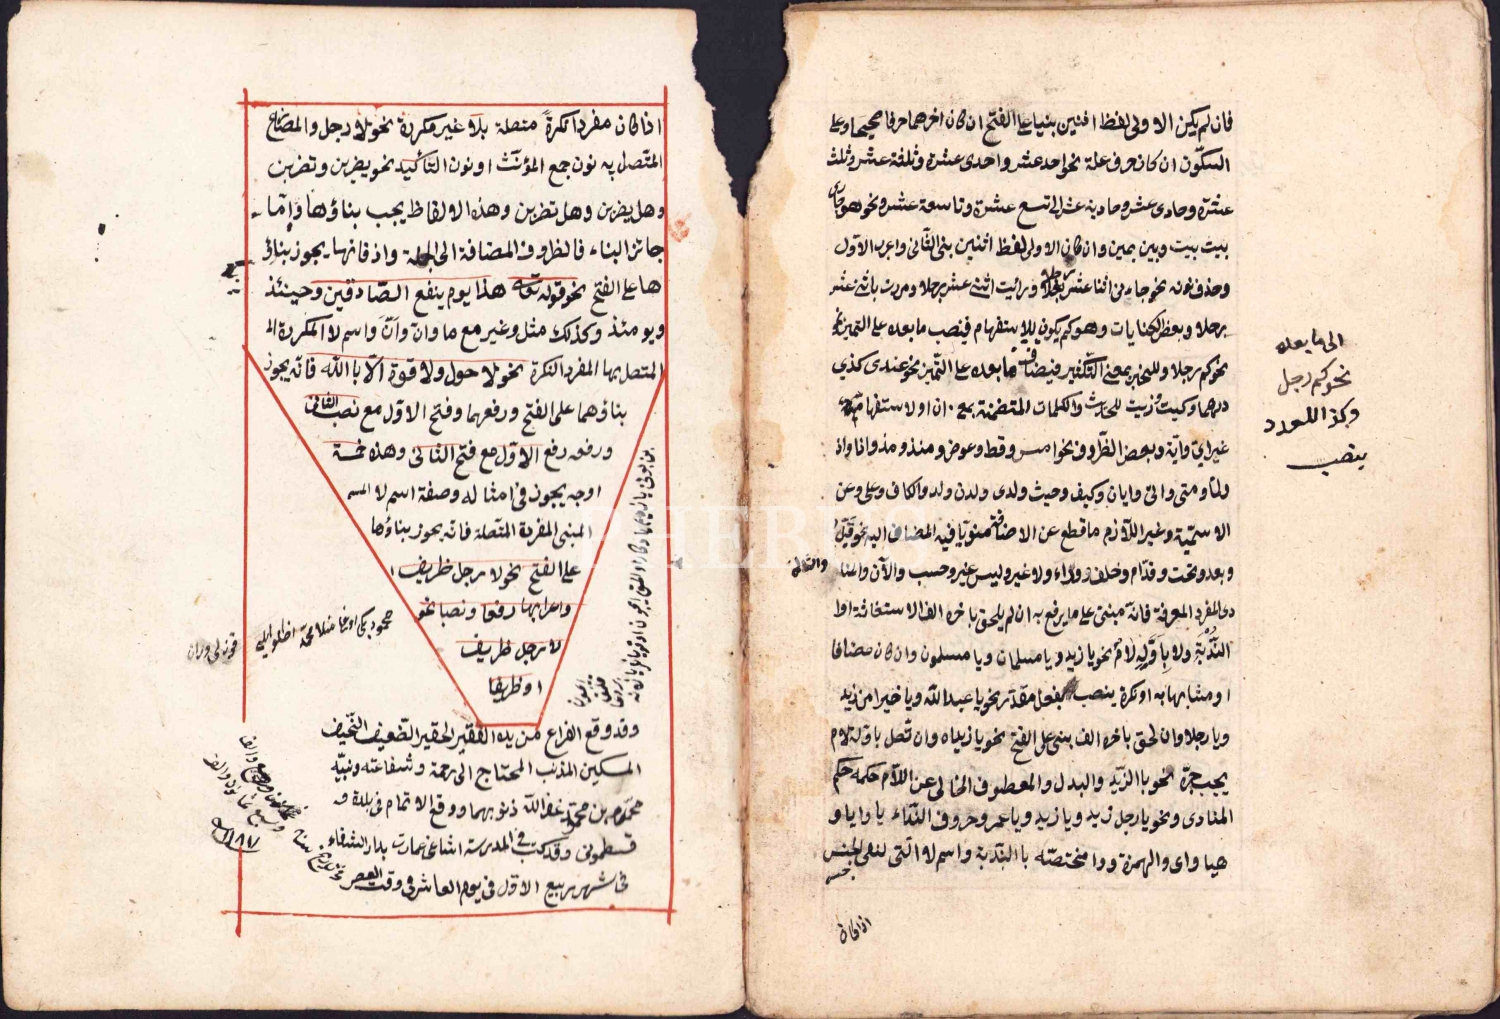 فان لم يكن الاولى لفظ اثنين بنيا على الفتح ان كان اخرهما حرفا صحيحا وعلى
السكون ان كان حرف علة نحو احد عشر واحدى عشرة وثلثة عشر وثلث
عشرة وحادى عشر وحادية عشر الى تسع عشرة وتاسعة عشر ونحو هو جارى
بيت بيت وبين بين وان كان الاولى لفظ اثنين بنى الثانى واعرب الاول
وحذف نونه نحو جاءنى اثنا عشر رجلا ورايت اثنى عشر رجلا ومررت باثنى عشر
رجلا وبعض الكنايات وهو كم يكون للاستفهام فينصب ما بعده على التميز نحو
نحو كم رجلا وللخبر بمعنى التكثير فيضاف ما بعده على التميز نحو عندى كذى
درهما وكيت وزيت للحديث والكلمات المتضمنة بمعنى ان او لاستفهام
غير اى واية وبعض الظروف نحو امس وقط وعوض ومنذ ومذ واذا واذ
ولما ومتى وانى وايان وكيف وحيث ولدى ولدن ولد والكاف وعلى وعن
الاسمية وغير اللازم ما قطع عن الاضافة منويا فيه المضاف اليه نحو قبل
وبعد وتحت وقدام وخلف ووراء ولا غير وليس غير وحسب والآن والمنا
دى المفرد المعرفة فانه مبنى على ما يرفع به ان لم يلحق باخره الف الاستغاثة او ا
الندبة ولا باوله لام نحو يا زيد ويا مسلمان ويا مسلمون وان كان مضافا
او مشابها به او نكرة ينصب بفعل مقدر نحو يا عبد الله ويا خيرا من زيد
ويا رجلا وان لحق باخره الف بنى على الفتح نحو يا زيداه وان تصل باوله لام
يجب جره نحو يا لزيد والبدل والمعطوف الخالى عن اللام حكمه حكم
المنادى ونحو يا رجل زيد ويا زيد ويا عمرو وحروف النداء يا وايا و
هيا واى والهمزة ووا مختصة بالندبة واسم لا التى لنفى الجنس
اذا كان
الى ما بعده
نحو كم رجل
وكذا للعدد
ينصب
اذا كان مفردا نكرة متصلة بلا غير مكررة نحو لا رجل والمضارع
المتصل به نون جمع المؤنث او نون التأكيد نحو يضربن وتضربن
وهل يضربن وهل تضربن وهذه الالفاظ يجب بناؤها واما
جائز البناء فالظروف المضافة الى الجملة واذ فانها يجوز بناؤ
ها على الفتح نحو قوله تعالى هذا يوم ينفع الصادقين وحينئذ
ويومئذ وكذلك مثل وغير مع ما وان وانّ واسم لا المكررة ال
المتصل بها المفرد النكرة نحو لا حول ولا قوة الا بالله فانه يجوز
بناؤهما على الفتح ورفعهما وفتح الاول مع نصب الثانى
ورفعه رفع الاول مع فتح الثانى وهذه خمسة
اوجه يجوز فى امثاله وصفة اسم لا
المبنى المفردة المتصلة فانه يجوز بناؤها
على الفتح نحو لا رجل ظريف
واعرابها رفعا ونصبا نحو
لا رجل ظريف
او ظريفا
وقد وقع الفراغ من يده الفقير الحقير الضعيف النحيف
المسكين المذنب المحتاج الى رحمة وشفاعته ونبيه
بن محمد غفر الله ذنوبهما ووقع الاتمام فى بلدة
قسطمونى وقد كتب فى المدرسة بدار الشفاء
فى شهر ربيع الاول فى يوم العاشر فى وقت العصر
PHEBUS